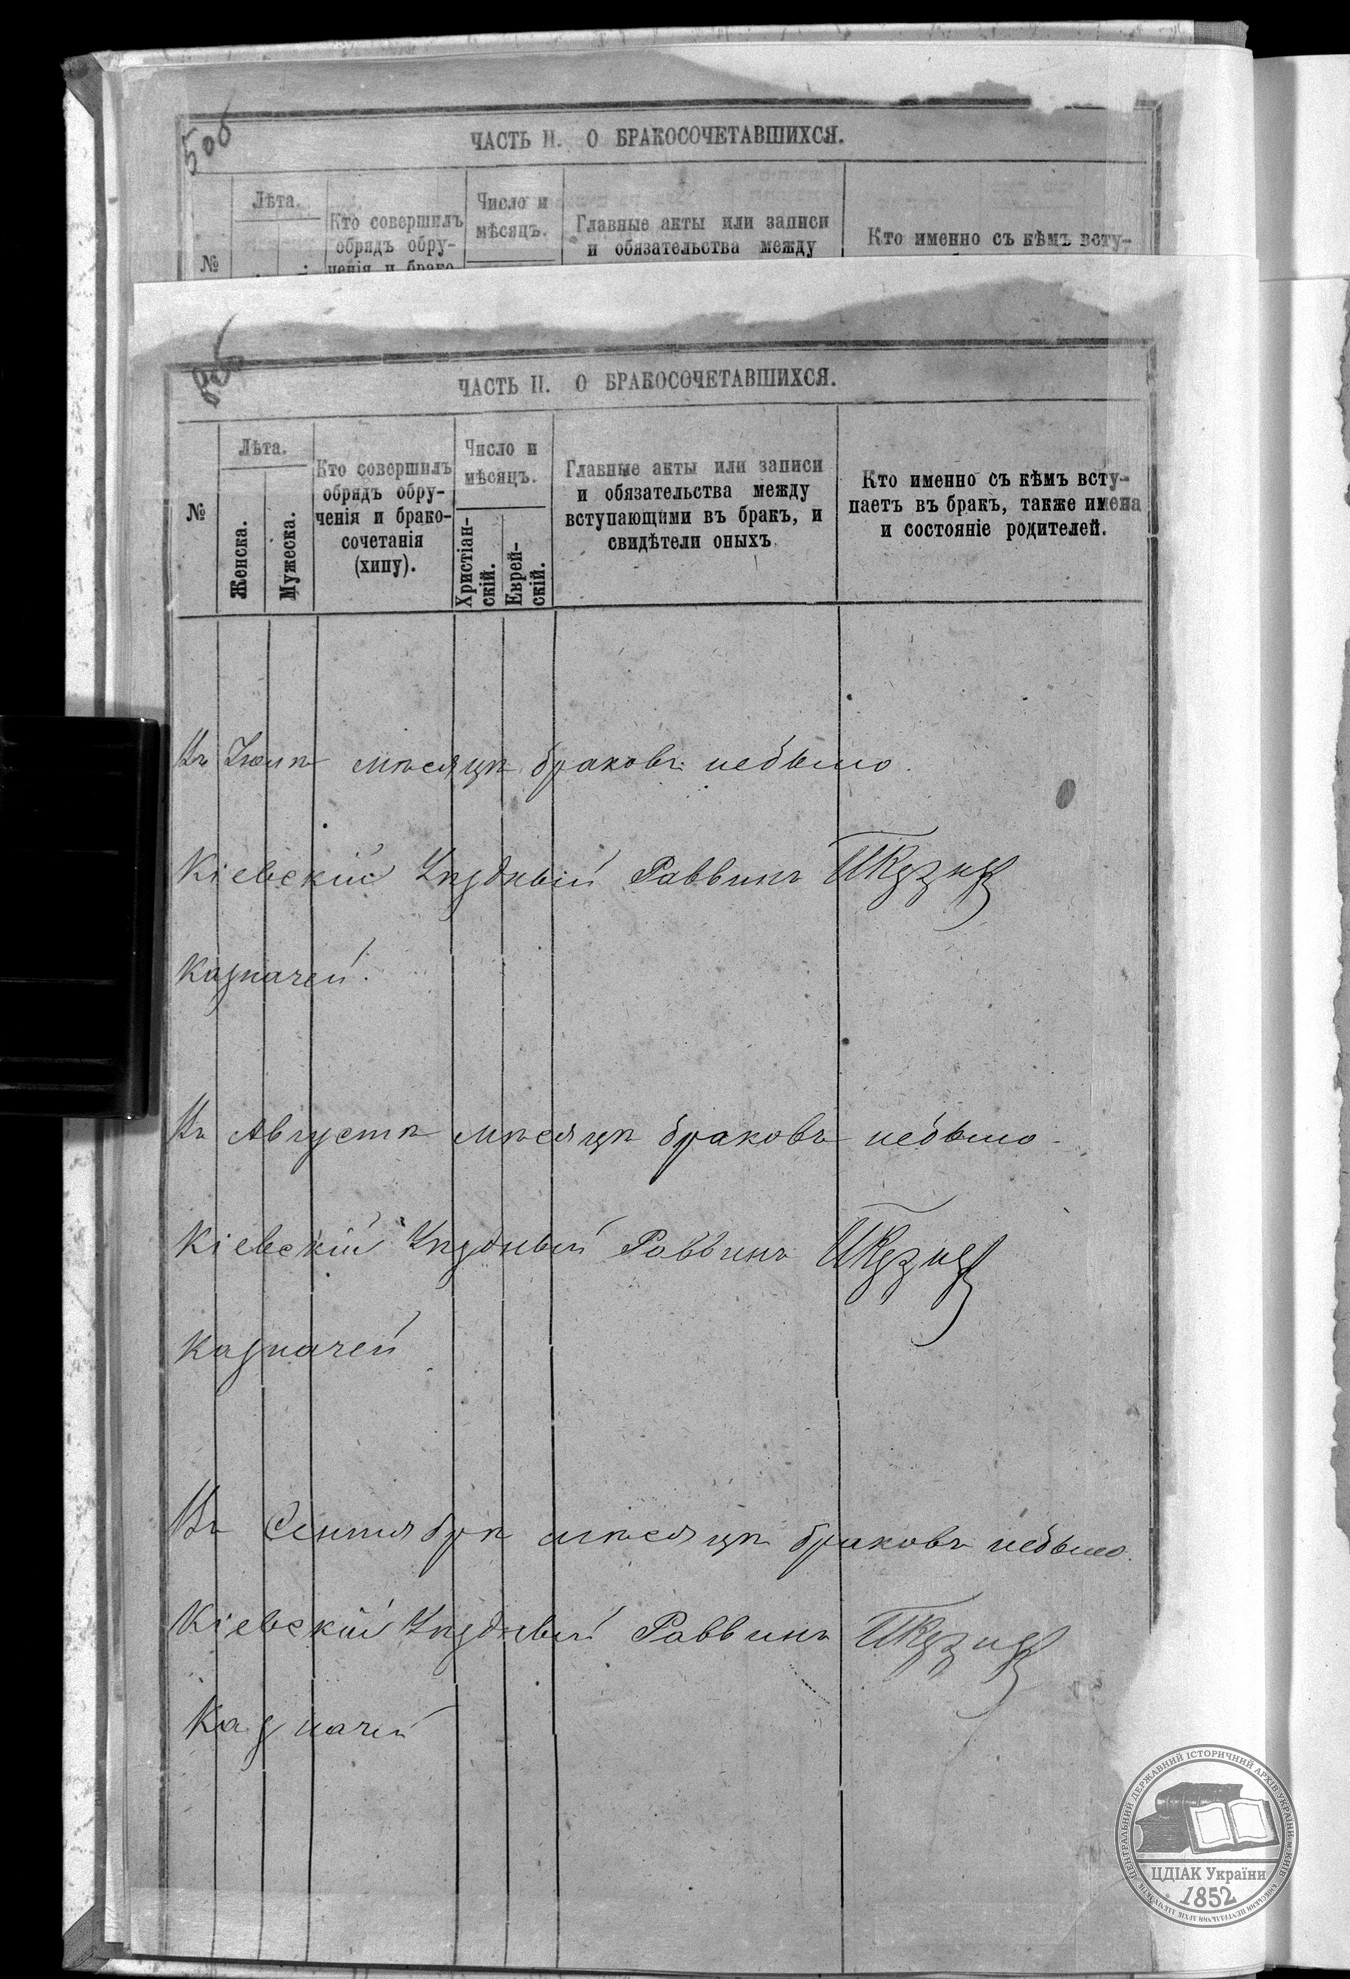 ЧАСТЬ II. О БРАКОСОЧЕТАВШИХСЯ.
№
Лѣта.
Кто совершилъ
обрядъ обру-
ченія и брако-
Число и
мѣсяцъ.
Главные акты или записи
и обязательства между
Кто именно съ кѣмъ всту-
ЧАСТЬ II. О БРАКОСОЧЕТАВШИХСЯ.
№
Лѣта.
Женска.
Мужеска.
Кто совершилъ
обрядъ обру-
ченія и брако-
сочетанія
(хипу).
Число и
мѣсяцъ.
Христіан-
скій.
Еврей-
скій.
Главные акты или записи
и обязательства между
вступающими въ бракъ, и
свидѣтели оныхъ
Кто именно съ кѣмъ всту-
паетъ въ бракъ, также имена
и состояніе родителей.
Въ Іюлѣ мѣсяцѣ браковъ небыло.
Кіевскій Уѣздный Раввинъ
Казначей.
Въ Августѣ мѣсяцѣ браковъ небыло.
Кіевскій Уѣздный Раввинъ
Казначей
Въ Сентябрѣ мѣсяцѣ браковъ небыло.
Кіевскій Уѣздный Раввинъ
Казначей
ЦЕНТРАЛЬНИЙ ДЕРЖАВНИЙ ІСТОРИЧНИЙ АРХІВ УКРАЇНИ, м. КИЇВ
ЦДІАК України
1852